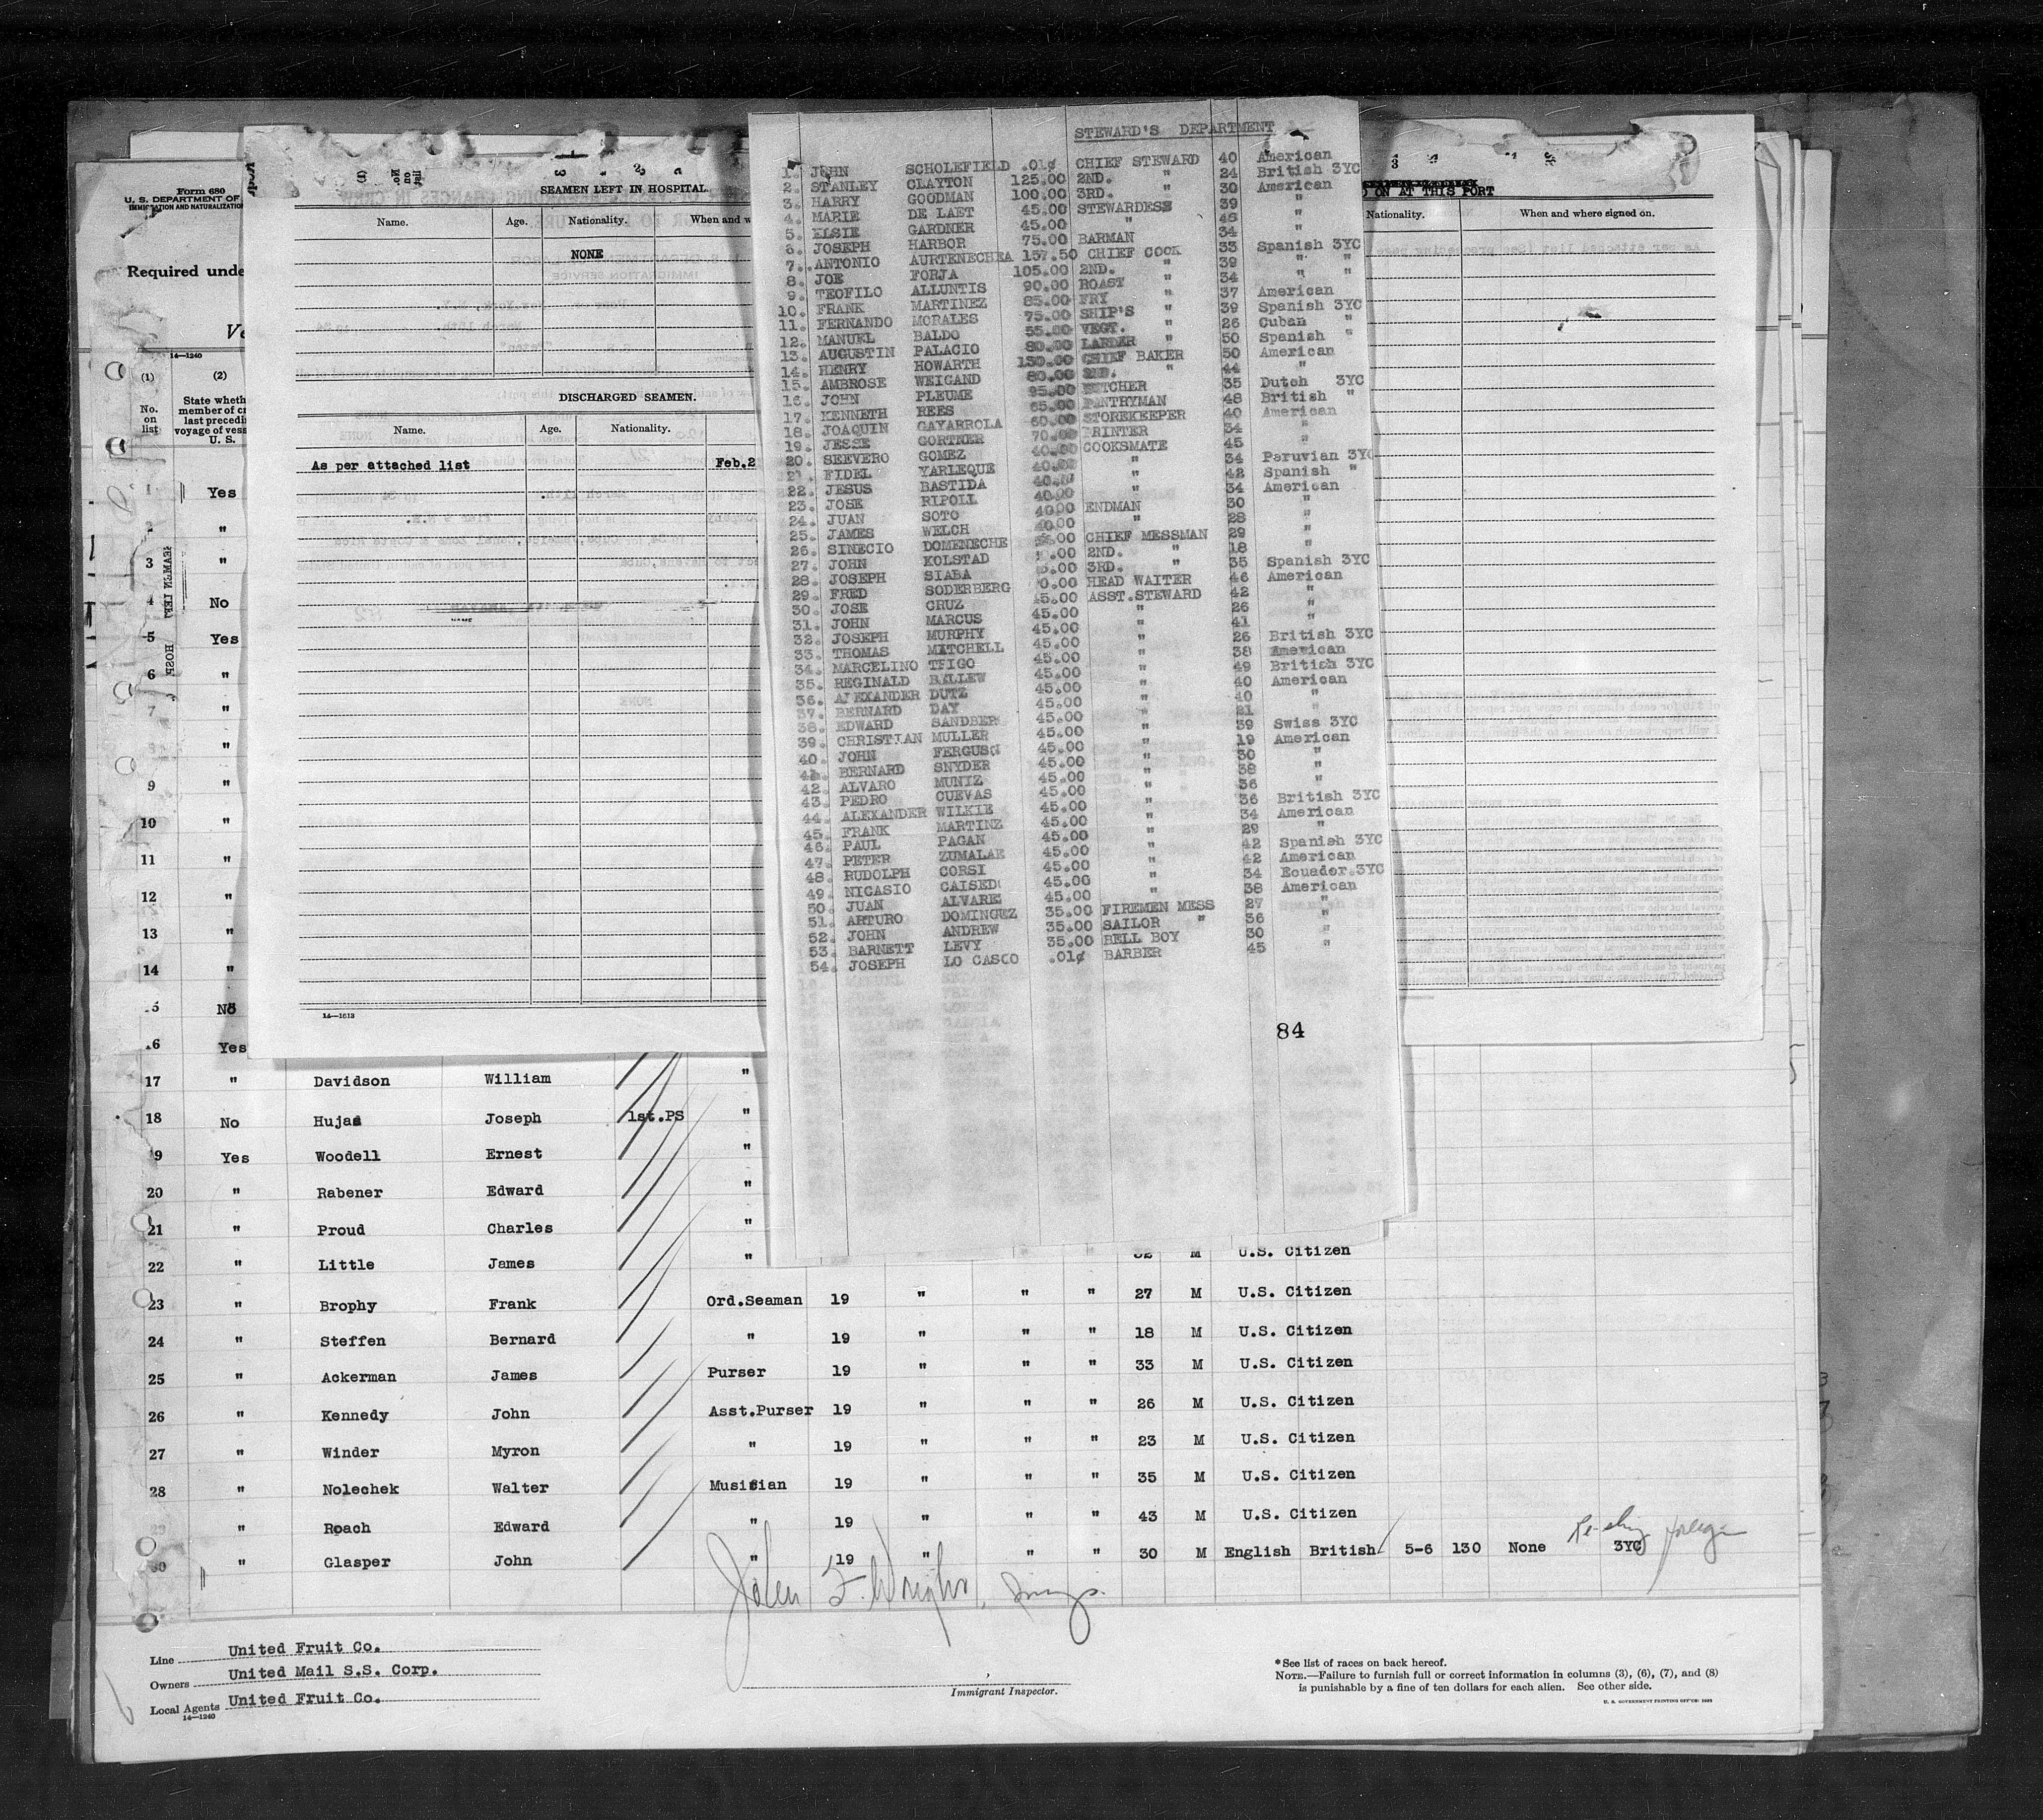 Form 680
U. S. DEPARTMENT OF
IMMIGRATION AND NATURALIZATION
Required unde
14—1240
(1)
(2)
No. on list
State wheth
member of cr
last precedi
voyage of vess
U. S.
SEAMEN LEFT IN HOSPITAL
Name. Age. Nationality. When and w
NONE
DISCHARGED SEAMEN.
Name. Age. Nationality.
As per attached list Feb.2
14—1613
D ON AT THIS PORT
Nationality. When and where signed on.
STEWARD'S DEPARTMENT
1. JOHN SCHOLEFIELD .01¢ CHIEF STEWARD 40 American
2. STANLEY CLAYTON 125.00 2ND. " 24 British 3YC
3. HARRY GOODMAN 100.00 3RD. " 30 American
4. MARIE DE LAET 45.00 STEWARDESS 39 "
5. ELSIE GARDNER 45.00 " 45 "
6. JOSEPH HARBOR 75.00 BARMAN 34 "
7. ANTONIO AURTENECHEA 157.50 CHIEF COOK 33 Spanish 3YC
8. JOE FORJA 105.00 2ND. " 39 " "
9. TEOFILO ALLUNTIS 90.00 ROAST " 34 " "
10. FRANK MARTINEZ 85.00 FRY " 37 American
11. FERNANDO MORALES 75.00 SHIP'S " 39 Spanish 3YC
12. MANUEL BALDO 55.00 VEGT. " 26 Cuban "
13. AUGUSTIN PALACIO 80.00 LARDER " 50 Spanish "
14. HENRY HOWARTH 130.00 CHIEF BAKER 50 American
15. AMBROSE WEIGAND 80.00 2ND. " 44 "
16. JOHN PLEUME 95.00 BUTCHER 35 Dutch 3YC
17. KENNETH REES 65.00 PANTRYMAN 48 British "
18. JOAQUIN GAYARROLA 60.00 STOREKEEPER 40 American
19. JESSE GORTNER 70.00 PRINTER 34 "
20. SEEVERO GOMEZ 40.00 COOKSMATE 45 "
21. FIDEL YARLEQUE 40.00 " 34 Peruvian 3YC
22. JESUS BASTIDA 40.00 " 42 Spanish "
23. JOSE RIPOLL 40.00 " 34 American
24. JUAN SOTO 40.00 ENDMAN 30 "
25. JAMES WELCH 40.00 " 28 "
26. SINECIO DOMENECHE CHIEF MESSMAN 29 "
27. JOHN KOLSTAD 2ND. " 18 "
28. JOSEPH SIABA 3RD. " 35 Spanish 3YC
29. FRED SODERBERG HEAD WAITER 46 American
30. JOSE CRUZ 45.00 ASST.STEWARD 42 "
31. JOHN MARCUS 45.00 " 26 "
32. JOSEPH MURPHY 45.00 " 41 "
33. THOMAS MITCHELL 45.00 " 26 British 3YC
34. MARCELINO TRIGO 45.00 " 38 American
35. REGINALD BELLEW 45.00 " 49 British 3YC
36. ALEXANDER DUTZ 45.00 " 40 American
37. BERNARD DAY 45.00 " 40 "
38. EDWARD SANDBER 45.00 " 21 "
39. CHRISTIAN MULLER 45.00 " 39 Swiss 3YC
40. JOHN FERGUSN 45.00 " 19 American
41. BERNARD SNYDER 45.00 " 30 "
42. ALVARO MUNIZ 45.00 " 38 "
43. PEDRO CUEVAS 45.00 " 36 "
44. ALEXANDER WILKIE 45.00 " 36 British 3YC
45. FRANK MARTINZ 45.00 " 34 American
46. PAUL PAGAN 45.00 " 29 "
47. PETER ZUMALAE 45.00 " 42 Spanish 3YC
48. RUDOLPH CORSI 45.00 " 42 American
49. NICASIO CAISED 45.00 " 34 Ecuador.3YC
50. JUAN ALVARE 45.00 " 38 American
51. ARTURO DOMINGUEZ 35.00 FIREMEN MESS 27 "
52. JOHN ANDREW 35.00 SAILOR " 36 "
53. BARNETT LEVY 35.00 BELL BOY 30 "
54. JOSEPH LO CASCO .01¢ BARBER 45
84
1 Yes
2 "
3 "
4 No
5 Yes
6 "
7 "
8 "
9 "
10 "
11 "
12 "
13 "
14 "
15 No
16 Yes
17 " Davidson William "
18 No Hujas Joseph 1st.PS "
19 Yes Woodell Ernest "
20 " Rabener Edward "
21 " Proud Charles "
22 " Little James " 32 M U.S. Citizen
23 " Brophy Frank Ord.Seaman 19 " " " 27 M U.S. Citizen
24 " Steffen Bernard " 19 " " " 18 M U.S. Citizen
25 " Ackerman James Purser 19 " " " 33 M U.S. Citizen
26 " Kennedy John Asst.Purser 19 " " " 26 M U.S. Citizen
27 " Winder Myron " 19 " " " 23 M U.S. Citizen
28 " Nolechek Walter Musician 19 " " " 35 M U.S. Citizen
29 " Roach Edward " 19 " " " 43 M U.S. Citizen
30 " Glasper John " 19 " " " 30 M English British 5-6 130 None 3YC
John F. Wright
Line United Fruit Co.
Owners United Mail S.S. Corp.
Local Agents United Fruit Co.
14—1240
Immigrant Inspector.
*See list of races on back hereof.
NOTE.—Failure to furnish full or correct information in columns (3), (6), (7), and (8)
is punishable by a fine of ten dollars for each alien. See other side.